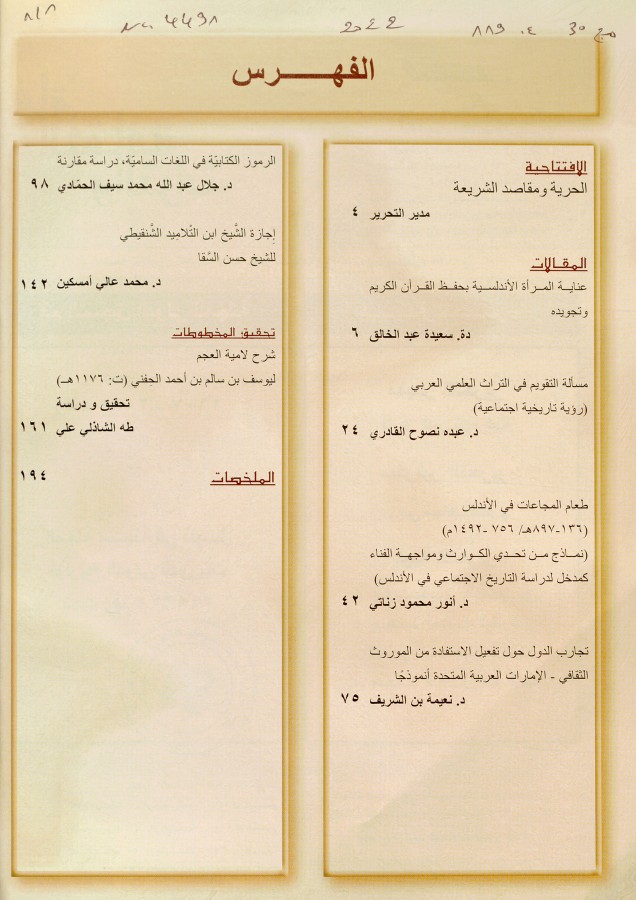 2022
الفهـــــرس
الافتتاحية
الحرية ومقاصد الشريعة
مدير التحرير ٤
المقـالات
عنايــة المــرأة الأندلســية بحفــظ القــرآن الكريم
وتجويده
دة. سعيدة عبد الخالق ٦
مسألة التقويم في التراث العلمي العربي
(رؤية تاريخية اجتماعية)
د. عبده نصوح القادري ٢٤
طعام المجاعات في الأندلس
(١٣٦-٨٩٧هـ/ ٧٥٦ -١٤٩٢م)
(نمــاذج مــن تحــدي الكــوارث ومواجهــة الفناء
كمدخل لدراسة التاريخ الاجتماعي في الأندلس)
د. أنور محمود زناتي ٤٢
تجارب الدول حول تفعيل الاستفادة من الموروث
الثقافي - الإمارات العربية المتحدة أنموذجًا
د. نعيمة بن الشريف ٧٥
الرموز الكتابيّة في اللغات الساميّة، دراسة مقارنة
د. جلال عبد الله محمد سيف الحمّادي ٩٨
إجازة الشَّيخ ابن التّلاميد الشَّنقيطي
للشيخ حسن السَّقا
د. محمد عالي أمسكين ١٤٢
تحقيق المخطوطات
شرح لامية العجم
ليوسف بن سالم بن أحمد الحِفني (ت: ١١٧٦هــ)
تحقيق و دراسة
طه الشاذلي علي ١٦١
الملخصات ١٩٤